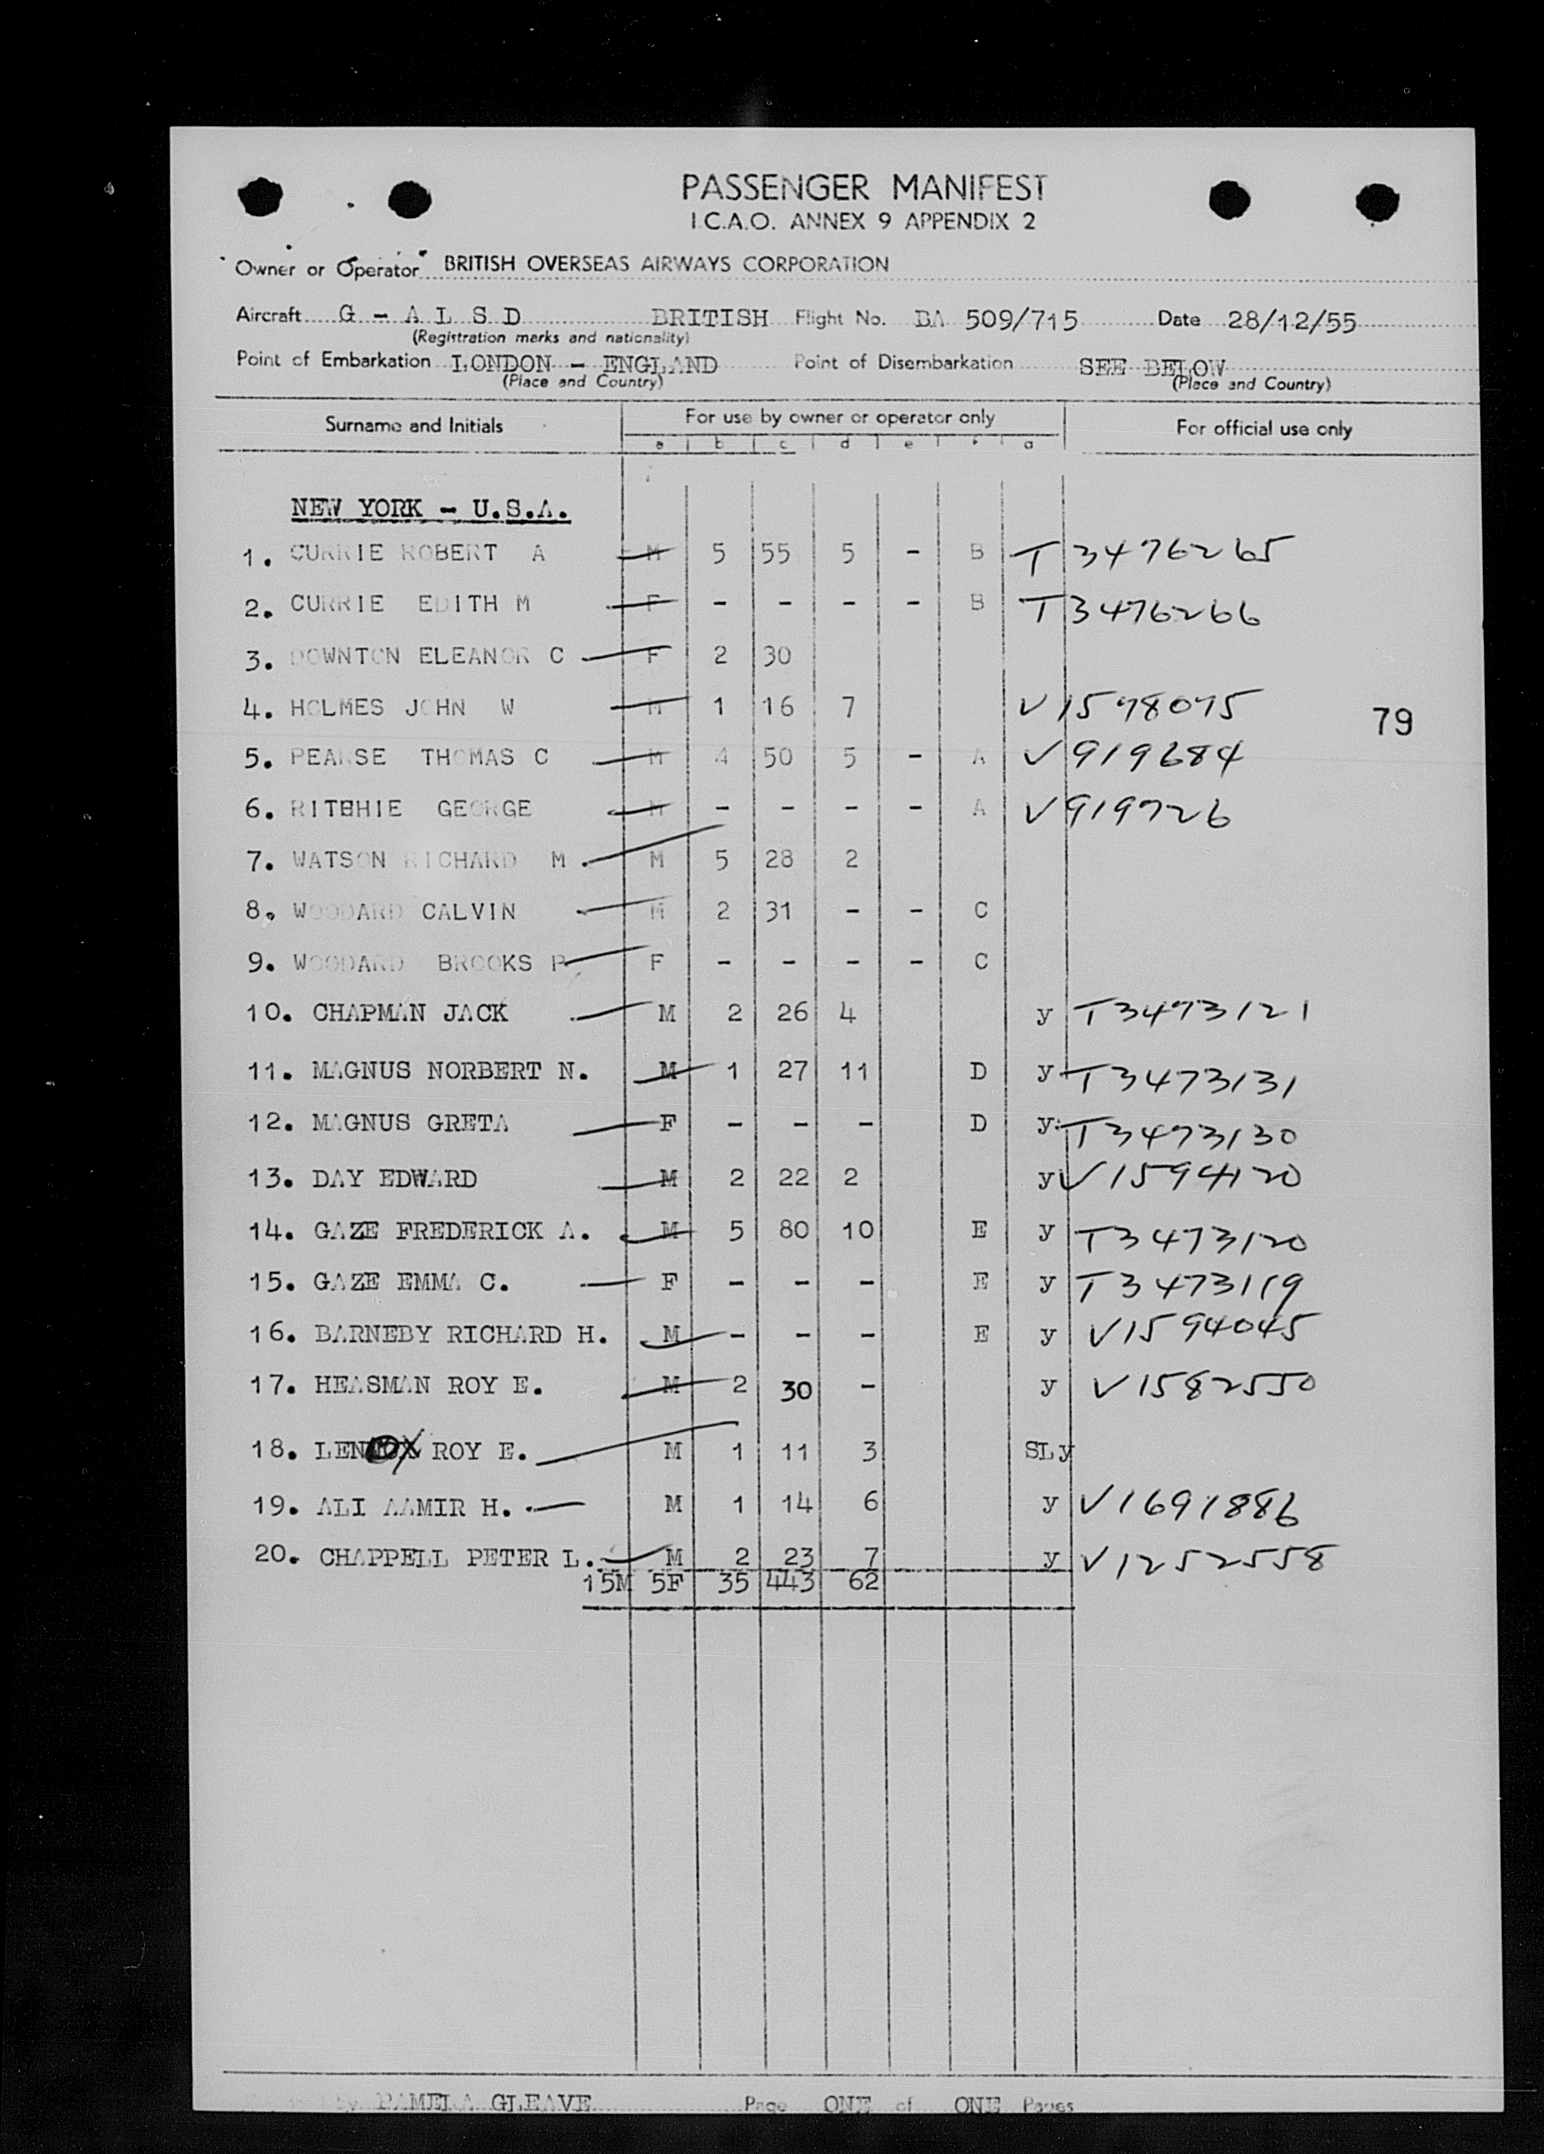 PASSENGER MANIFEST
I.C.A.O. ANNEX 9 APPENDIX 2
Owner or Operator BRITISH OVERSEAS AIRWAYS CORPORATION
Aircraft G - A L S D BRITISH Flight No. BA 509/715 Date 28/12/55
(Registration marks and nationality)
Point of Embarkation LONDON - ENGLAND Point of Disembarkation SEE BELOW
(Place and Country) (Place and Country)
Surname and Initials For use by owner or operator only For official use only
a b c d e f g
NEW YORK - U.S.A.
1. CURRIE ROBERT A M 5 55 5 - B T 3476265
2. CURRIE EDITH M F - - - - B T 3476266
3. DOWNTON ELEANOR C F 2 30
4. HOLMES JOHN W M 1 16 7 V 1578075
79
5. PEARSE THOMAS C M 4 50 5 - A V 919684
6. RITCHIE GEORGE M - - - - A V 919726
7. WATSON RICHARD M. M 5 28 2
8. WOODARD CALVIN M 2 31 - - C
9. WOODARD BROOKS P F - - - - C
10. CHAPMAN JACK M 2 26 4 y T3473121
11. MAGNUS NORBERT N. M 1 27 11 D y T3473131
12. MAGNUS GRETA F - - - D y T3473130
13. DAY EDWARD M 2 22 2 y V1594120
14. GAZE FREDERICK A. M 5 80 10 E y T3473120
15. GAZE EMMA C. F - - - E y T3473119
16. BARNEBY RICHARD H. M - - - E y V1594045
17. HEASMAN ROY E. M 2 30 - y V1582550
18. LENNOX ROY E. M 1 11 3 SLy
19. ALI AAMIR H. M 1 14 6 y V1691886
20. CHAPPELL PETER L. M 2 23 7 y V1252558
15M 5F 35 443 62
by PAMELA GLEAVE Page ONE of ONE Pages